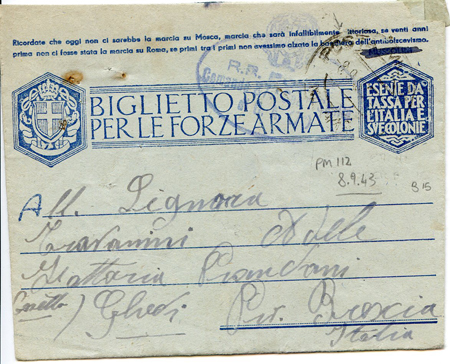 Ricordate che oggi non ci sarebbe la marcia su Mosca, marcia che sarà infallibilmente vittoriosa, se venti anni
prima non ci fosse stata la marcia su Roma, se primi tra i primi non avessimo alzato la bandiera dell'antibolscevismo.
R.R.
BIGLIETTO POSTALE
PER LE FORZE ARMATE
ESENTE DA
TASSA PER
L'ITALIA E
SVE COLONIE
PM 112
8.9.43
B15
All. Signora
Adele
Ghedi
Pr. Brescia
Italia